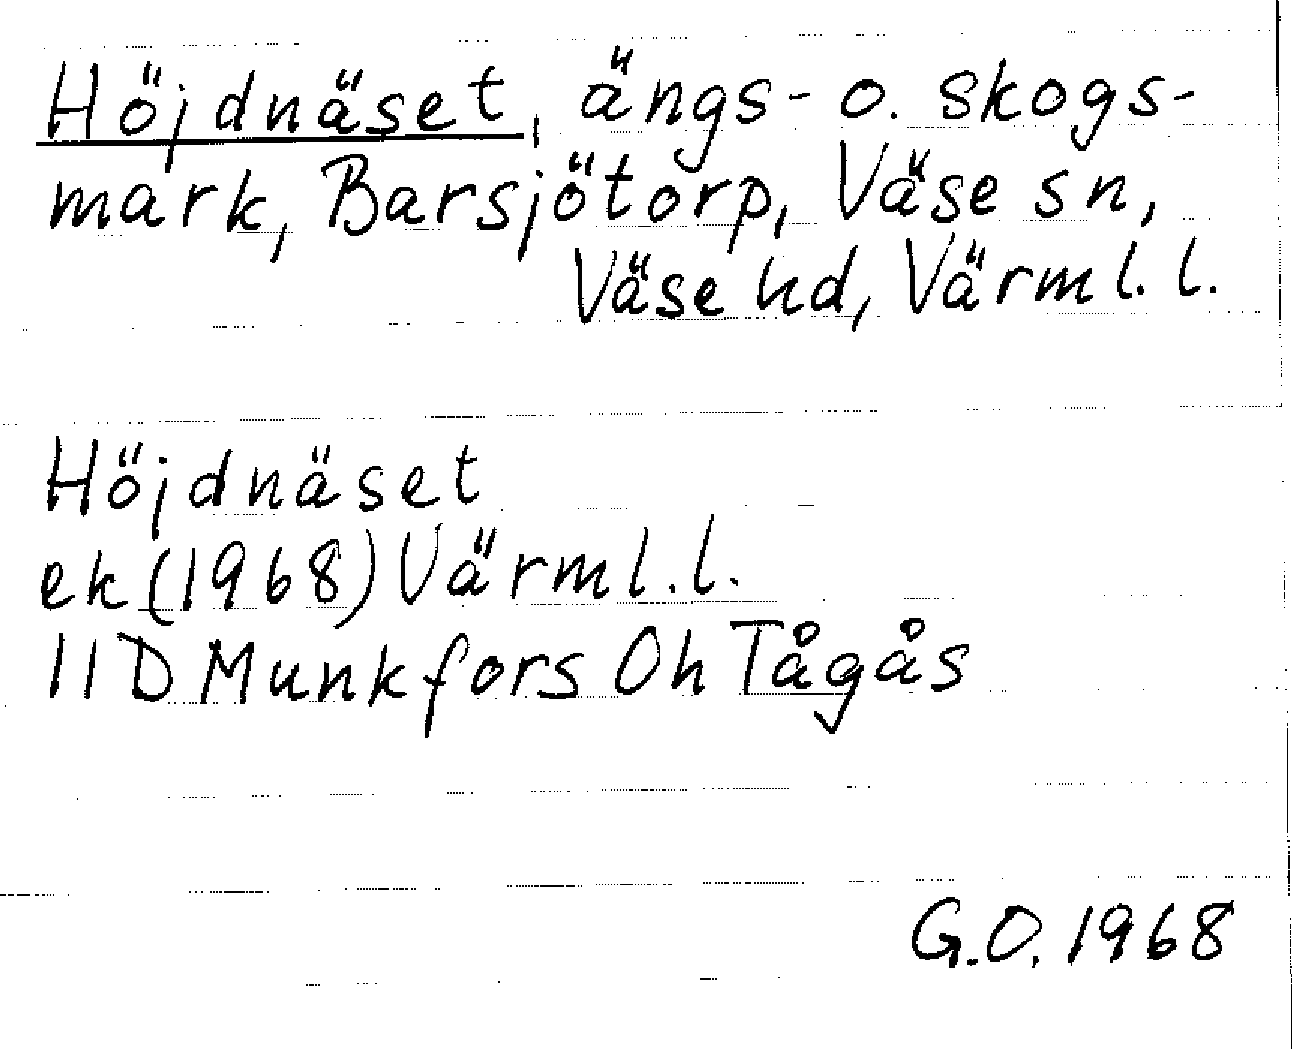 Höjdnäset, ängs- o. skogs-
mark, Barsjötorp, Väse sn,
Väse hd, Värml. l.
Höjdnäset
ek (1968) Värml. l.
11D Munkfors Oh Tågås
G.O. 1968